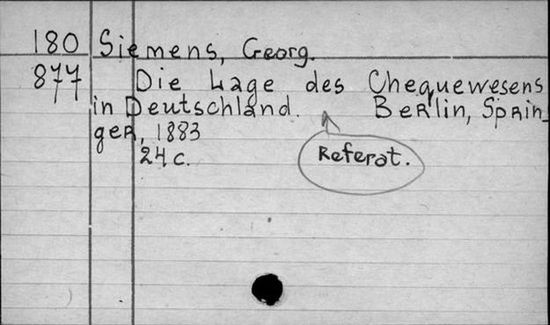 180 Siemens, Georg.
877 Die Lage des Chequewesens
in Deutschland. Berlin, Sprin_
ger, 1883
24 c.
Referat.